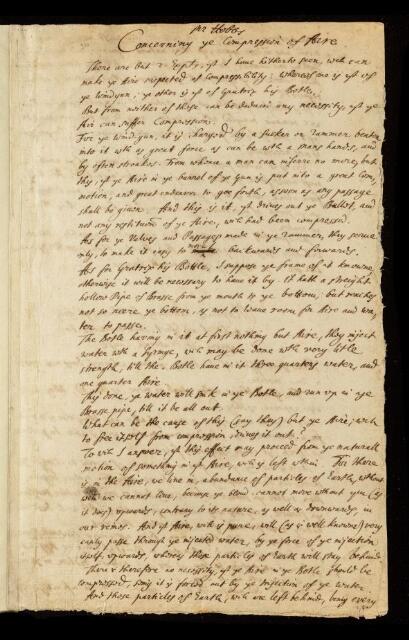 Mr Hobbs
Concerning ye Compression of Aire.
There are but 2 Expts, yt I have hitherto seen, wch can
make ye Aire suspected of compressibility: whereof one is yt of
ye wind-gun, ye other is yt of Gratrix his Bottle.
But from neither of these can be deduced any necessity, yt ye
Air can suffer Compression.
For ye wind-gun, it is charged by a sucker or rammer beaten
into it with as great force as can be wth a mans hands, and
by often stroakes. From whence a man can inferre no more, but
this, yt ye Aire in ye barrel of ye Gun is put into a great Com-
motion, and great endeavor to goe forth, assoon as any passage
shall be given. And this is it, yt drives out ye Bullet, and
not any restitution of ye Aire, wch had been compressed.
As for ye Valves and Passages made in ye rammer, they serve
only, to make it easy to backwards and forwards.
As for Gratrix his Bottle, I suppose ye frame of it knowne,
otherwise it will be necessary to have it by. It hath a streight
hollow Pipe of Brasse from ye mouth to ye bottom, but reaches
not so neere ye bottom, as not to leave room for Aire and wa-
ter to passe.
The Botle having in it at first nothing but Aire, they inject
water wth a Syringe, wch may be done wth very litle
strength, till the Botle have in it three quarters water, and
one quarter Aire.
This done, ye water will sink in ye Botle, and run up in ye
Brasse pipe, till it be all out.
What can be the cause of this (say they) but ye Aire, wch
to free itself from compression, drives it out?
To wch I answer, yt this effect may proceed from ye naturall
motion of something in yt Aire, wch is left within. For there
is in the Aire, we live in, abundance of particles of Earth, without
wch we cannot live, because ye blood cannot move without you (as
it does) upwards, contrary to its nature, as well as downwards, in
our veines. And yt Aire, wch is pure, will (as is well knowne) very
easily passe through ye injected water, by ye force of ye injection
itself, upwards, whereas those particles of Earth will stay behind.
There is therefore no necessity, yt ye Aire in ye Botle should be
compressed, seing it is forced out by ye injection of ye water.
And those particles of Earth, wch are left behind, being every